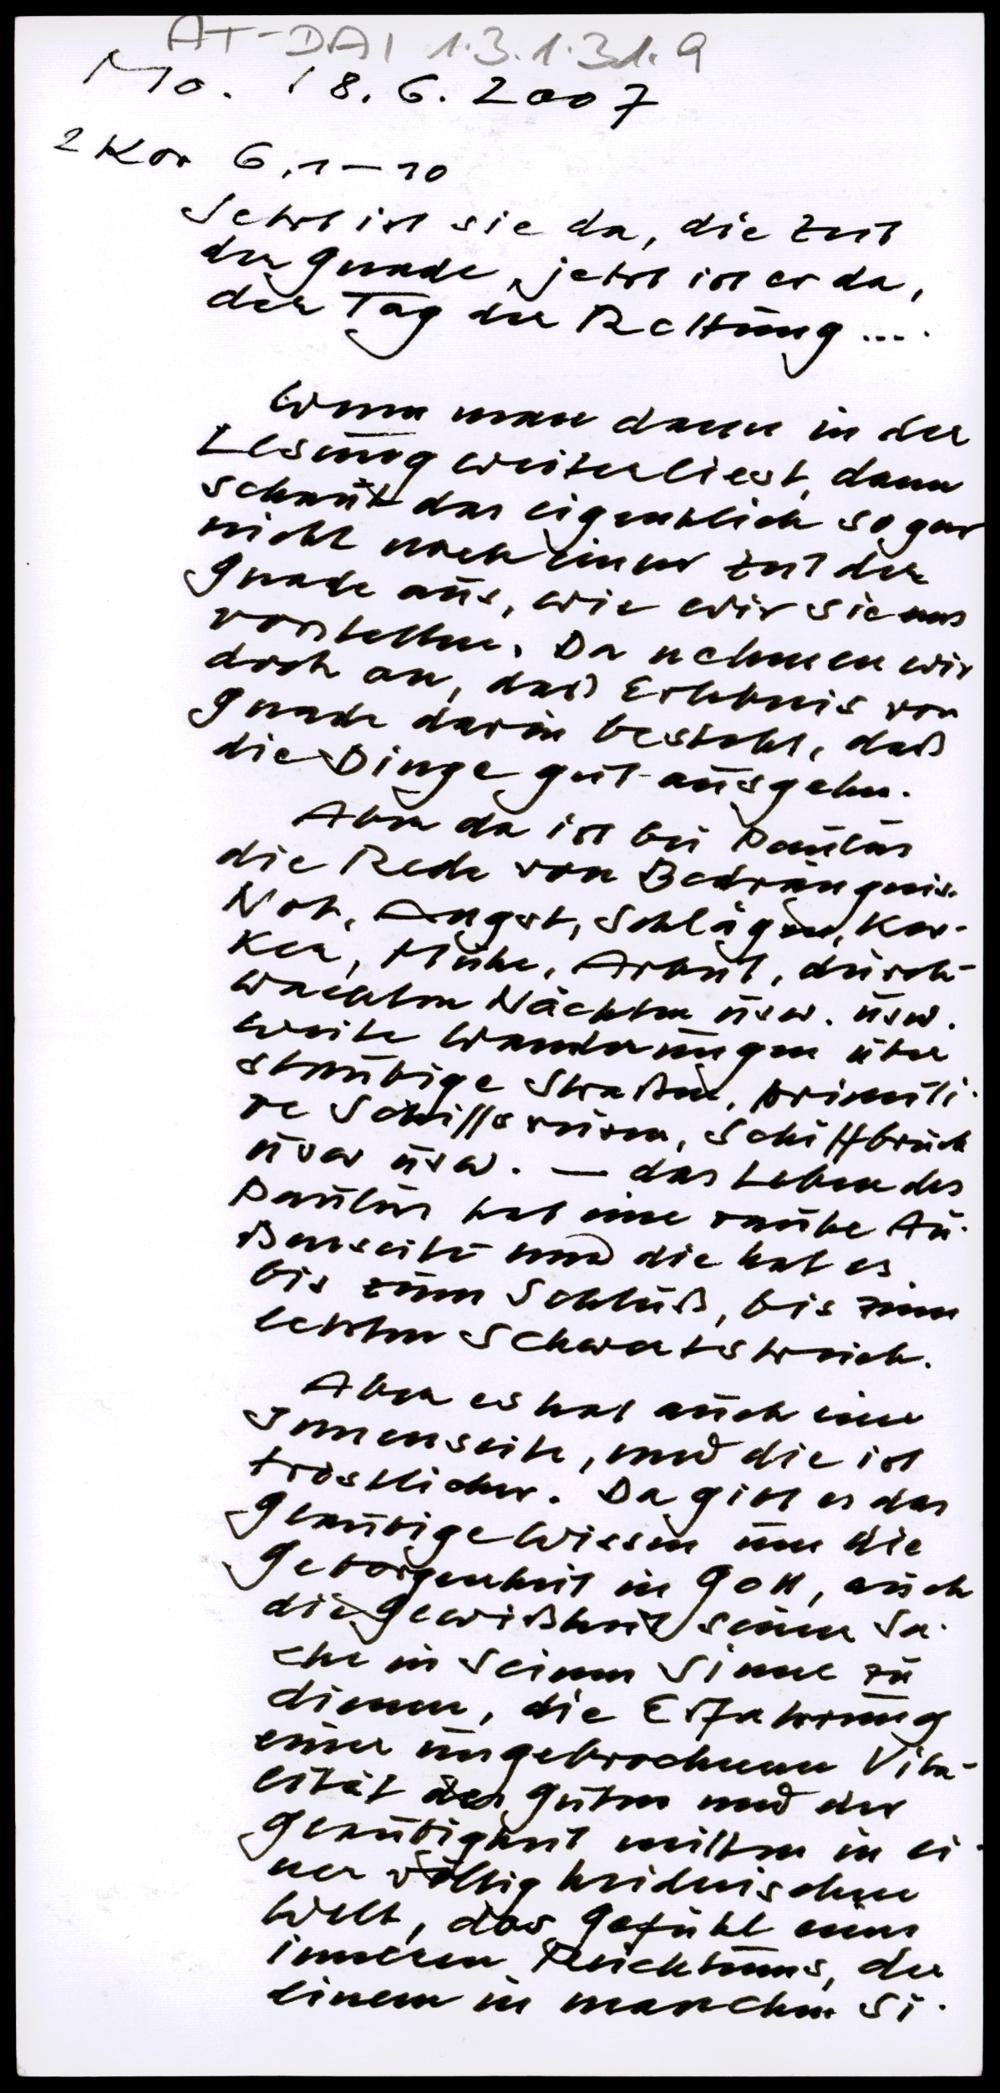 AT-DAI 1.3.1.31.9
Mo. 18.6.2007
2 Kor 6,1–10
Jetzt ist sie da, die Zeit
der Gnade, jetzt ist er da,
der Tag der Rettung ....
Wenn man dann in der
Lesung weiterliest, dann
schaut das eigentlich so gar
nicht nach einer Zeit der
Gnade aus, wie wir sie uns
vorstellen. Da nehmen wir
doch an, daß Erlebnis von
Gnade darin besteht, daß
die Dinge gut ausgehn.
Aber da ist bei Paulus
die Rede von Bedrängnis,
Not, Angst, Schlägen, Ker-
ker, Mühe, Arbeit, durch-
wachten Nächten usw. usw.
weite Wanderungen über
staubige Straßen, primiti-
ve Schiffsreisen, Schiffbruch
usw usw. — das Leben des
Paulus hat eine rauhe Au-
ßenseite und die hat es
bis zum Schluß, bis zum
letzten Schwertstreich.
Aber es hat auch eine
Innenseite, und die ist
tröstlicher. Da gibt es das
gläubige Wissen um die
Geborgenheit in Gott, auch
die Gewißheit seiner Sa-
che in seinem Sinne zu
dienen, die Erfahrung
einer ungebrochenen Vita-
lität des Guten und der
Gläubigkeit mitten in ei-
ner völlig heidnischen
Welt, das Gefühl eines
inneren Reichtums, der
einem in manchen Si-